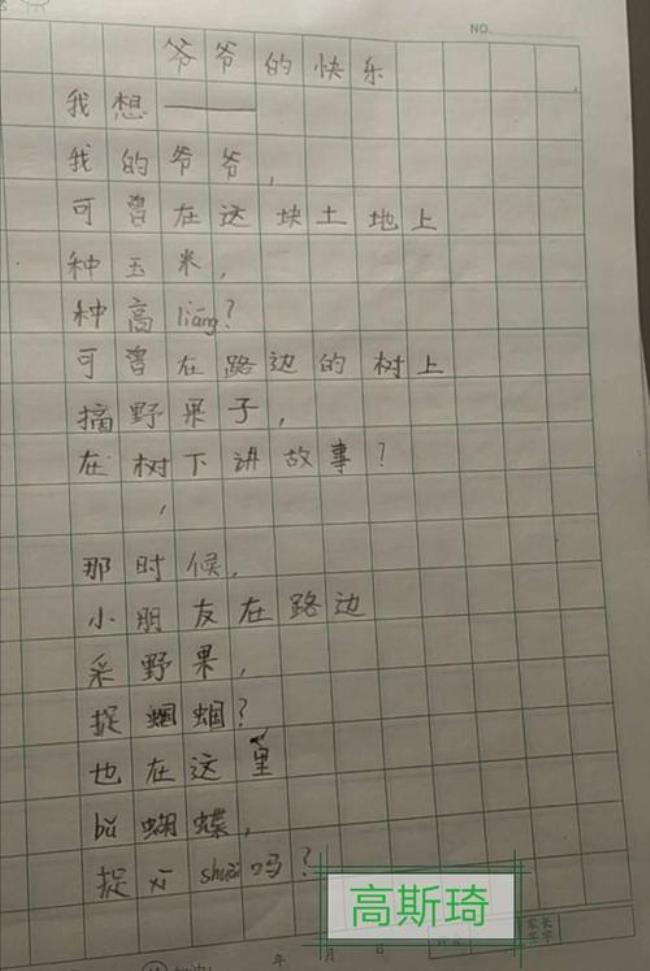 NO.
爷爷的快乐
我想——
我的爷爷，
可曾在这块土地上
种玉米，
种高liāng？
可曾在路边的树上
摘野果子，
在树下讲故事？
，
那时候，
小朋友在路边
采野果，
捉蝈蝈？
也在这里
bǔ蝴蝶，
捉xī shuài吗？
高斯琦
年 月 日